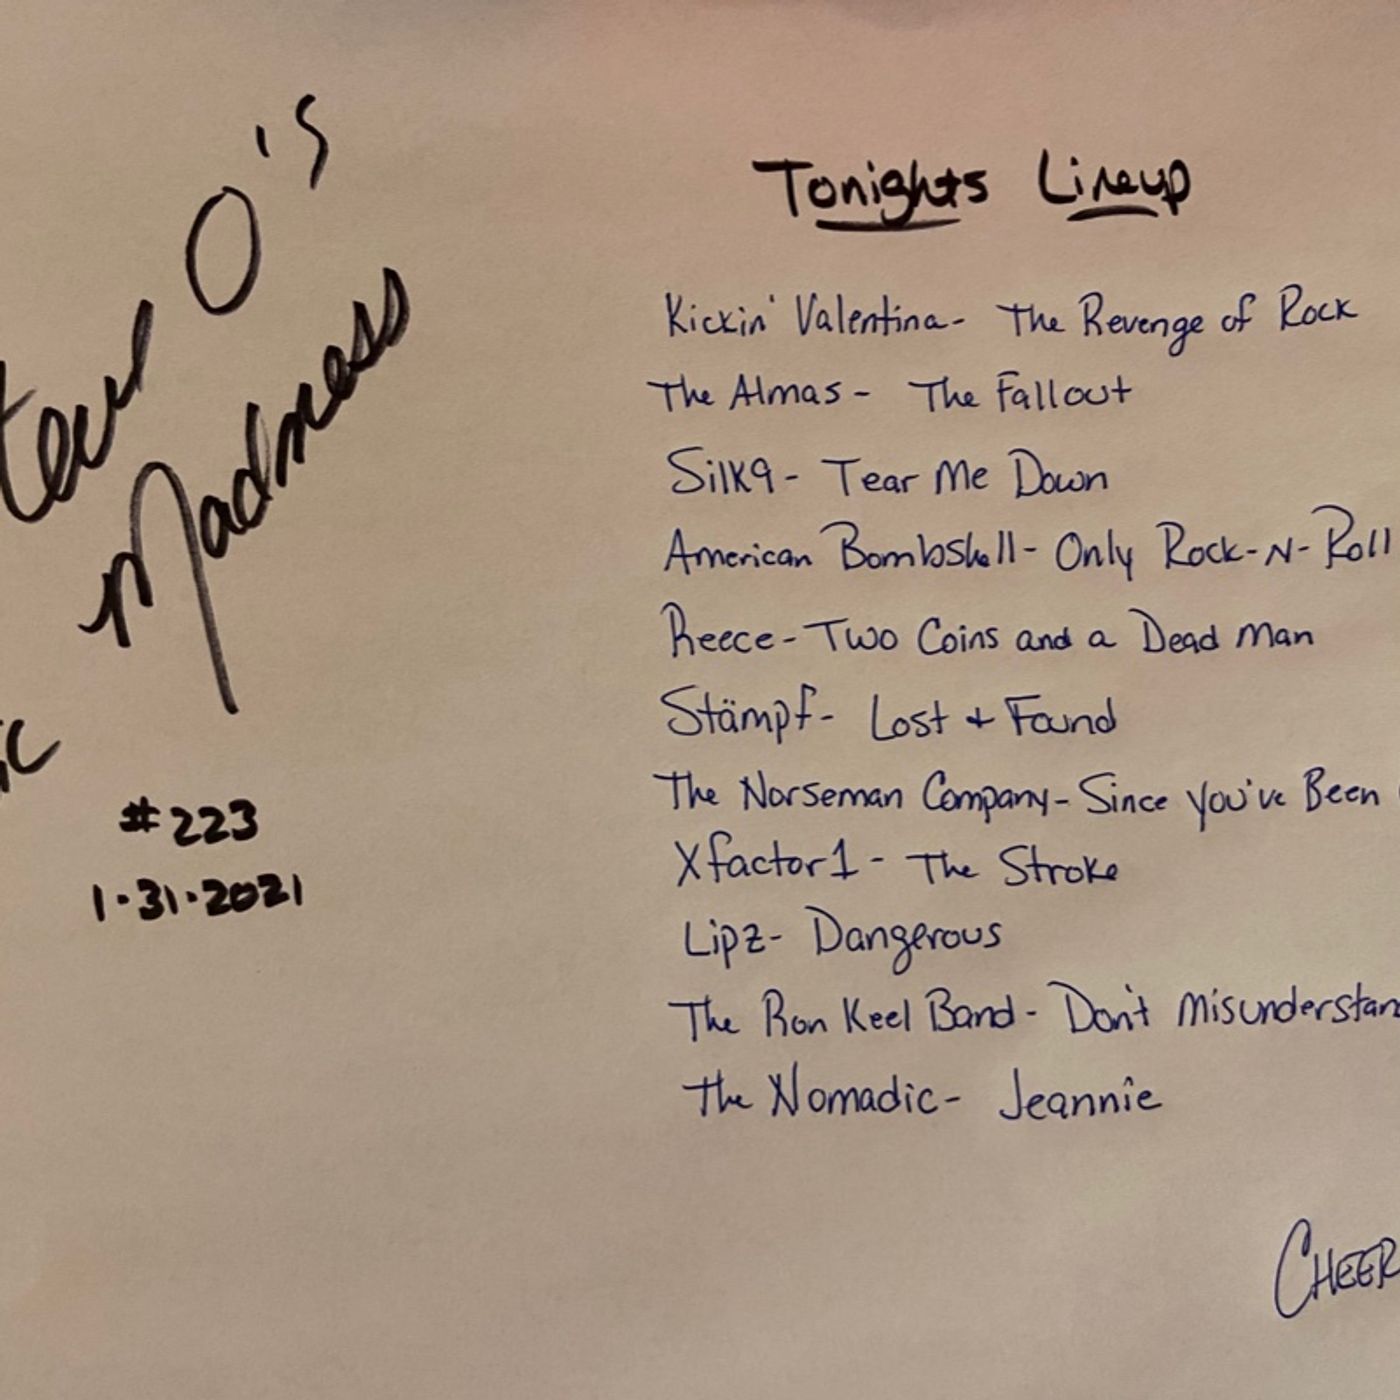 O's
Madness
#223
1.31.2021
Tonights Lineup
Kickin' Valentina- The Revenge of Rock
The Almas- The Fallout
Silk9- Tear Me Down
American Bombshell- Only Rock-N-Roll
Reece- Two Coins and a Dead Man
Stämpf- Lost + Found
The Norseman Company- Since You've Been
Xfactor1- The Stroke
Lipz- Dangerous
The Ron Keel Band- Don't Misunderstan
The Nomadic- Jeannie
CHEER